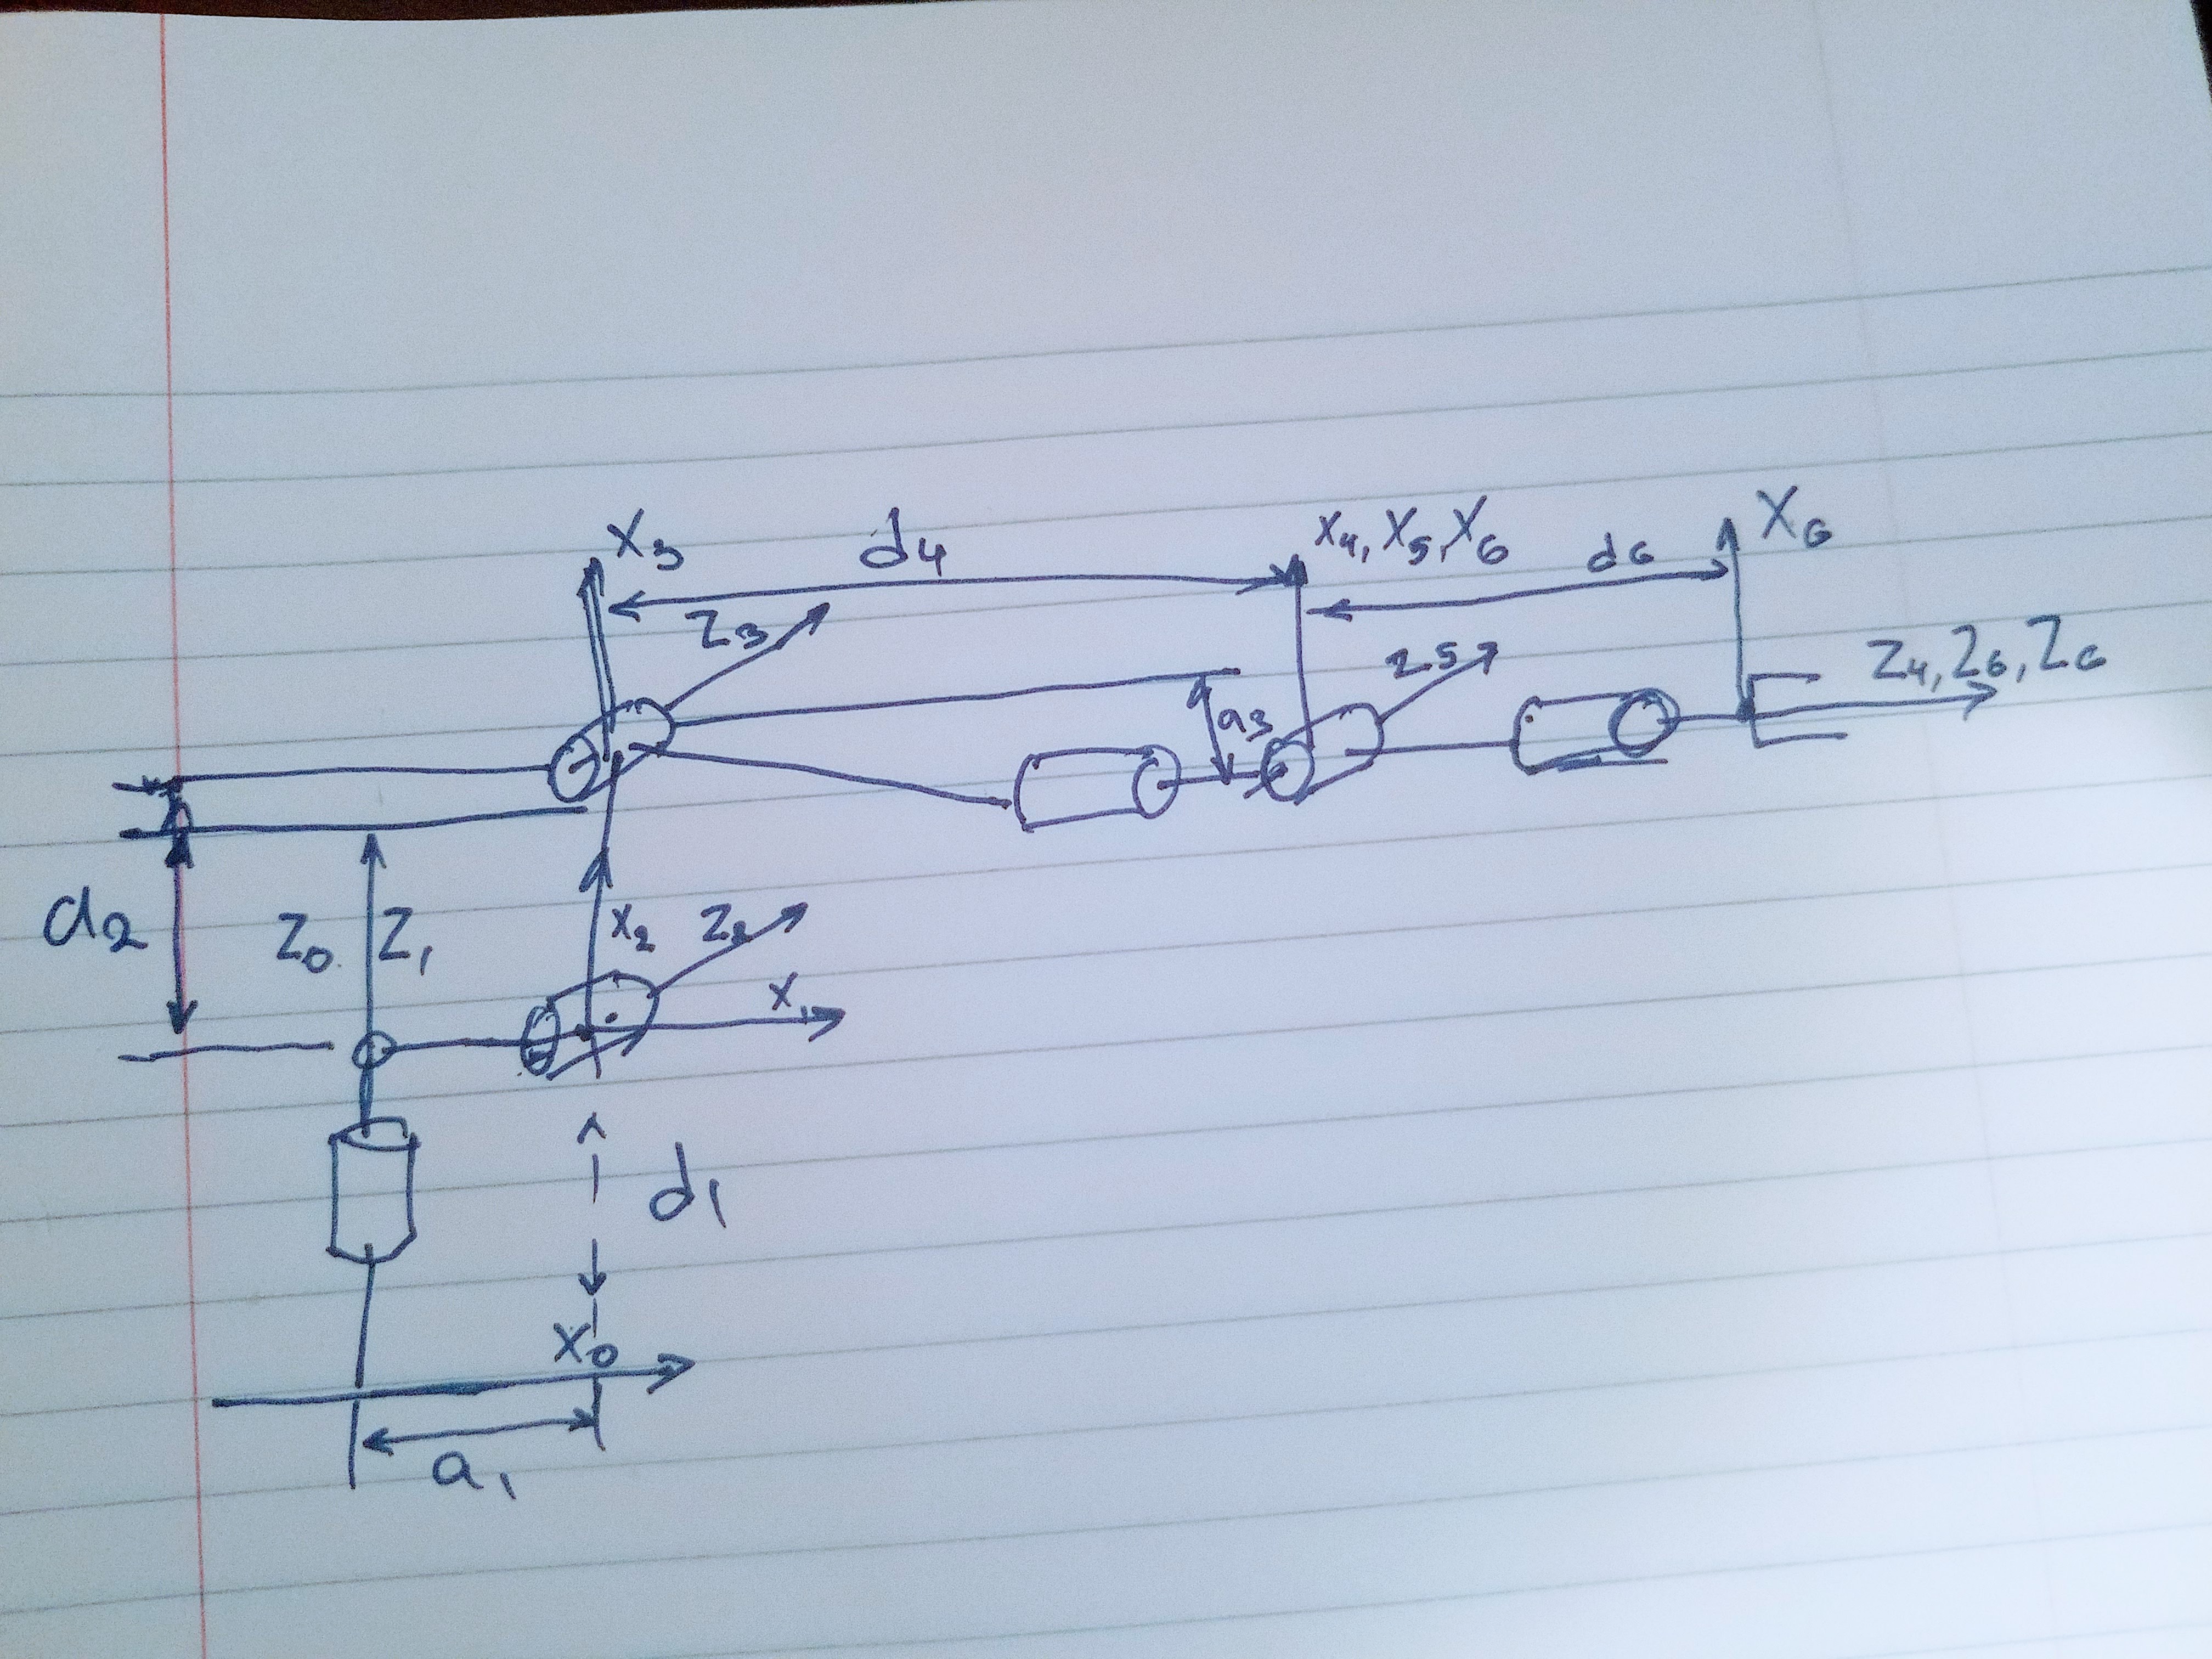 X3 d4 X4, X5, X6 d6 X6
Z3 Z5 Z4, Z6, Z6
a3
d2 Z0 Z1 X2 Z2 X1
d1
X0
a1